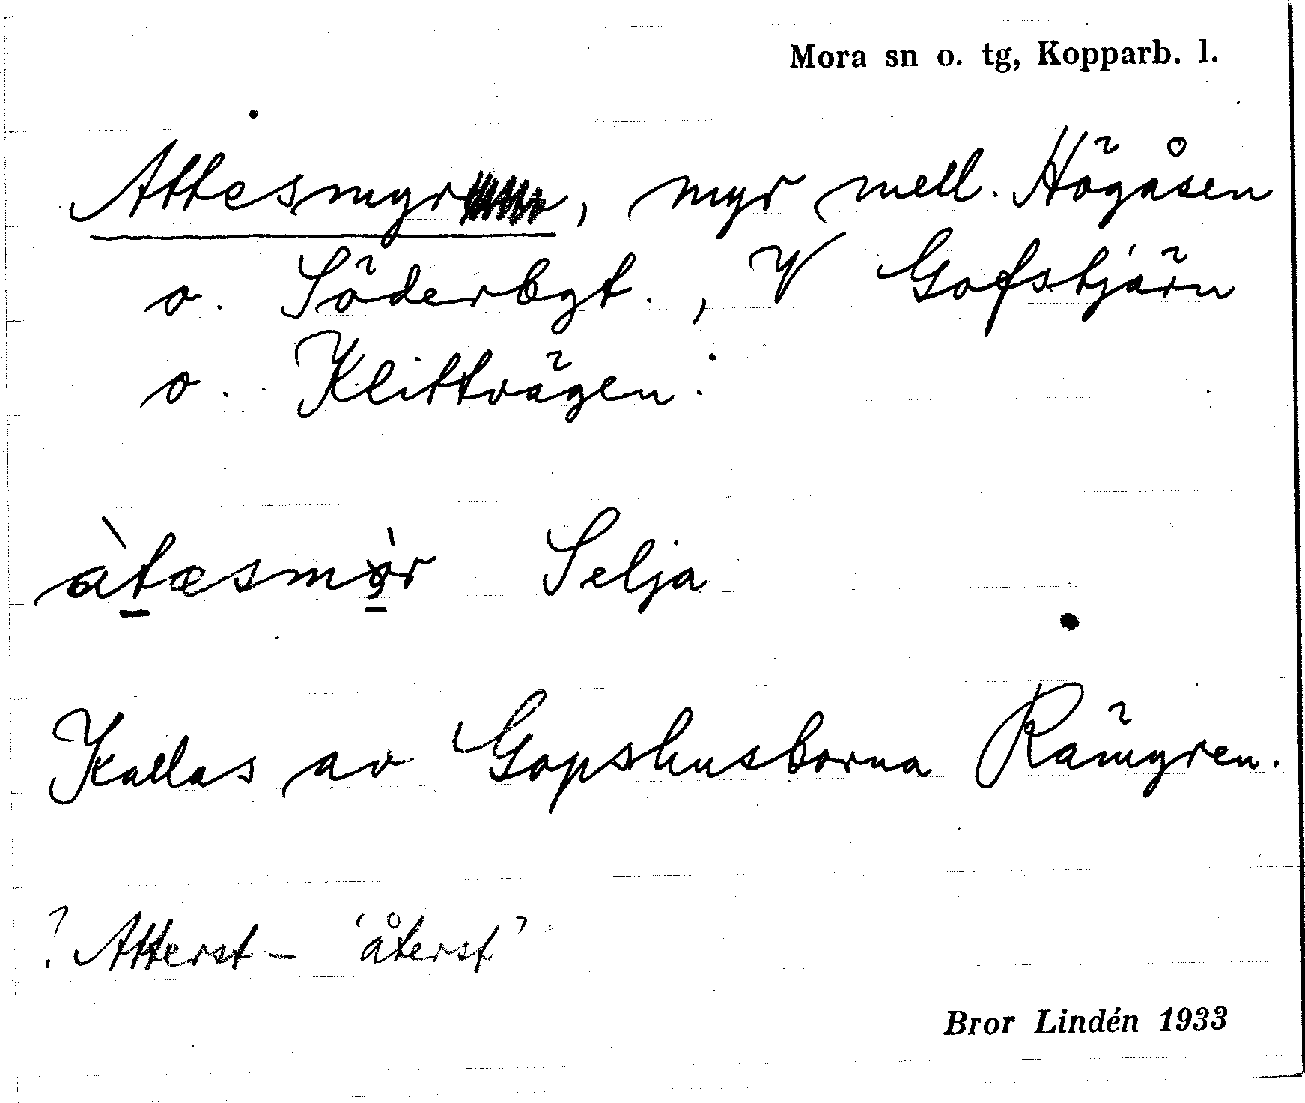 Mora sn o. tg, Kopparb. l.
Attesmyr, myr mell. Högåsen
o. Söderbgt., V Gofstjärn
o. Klittvägen.
àtæsmỳr Selja
Kallas av Gopshusborna Rämyren.
? Atterst- 'återst'
Bror Lindén 1933